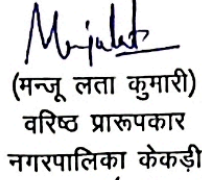 (मन्जू लता कुमारी)
वरिष्ठ प्रारूपकार
नगरपालिका केकड़ी